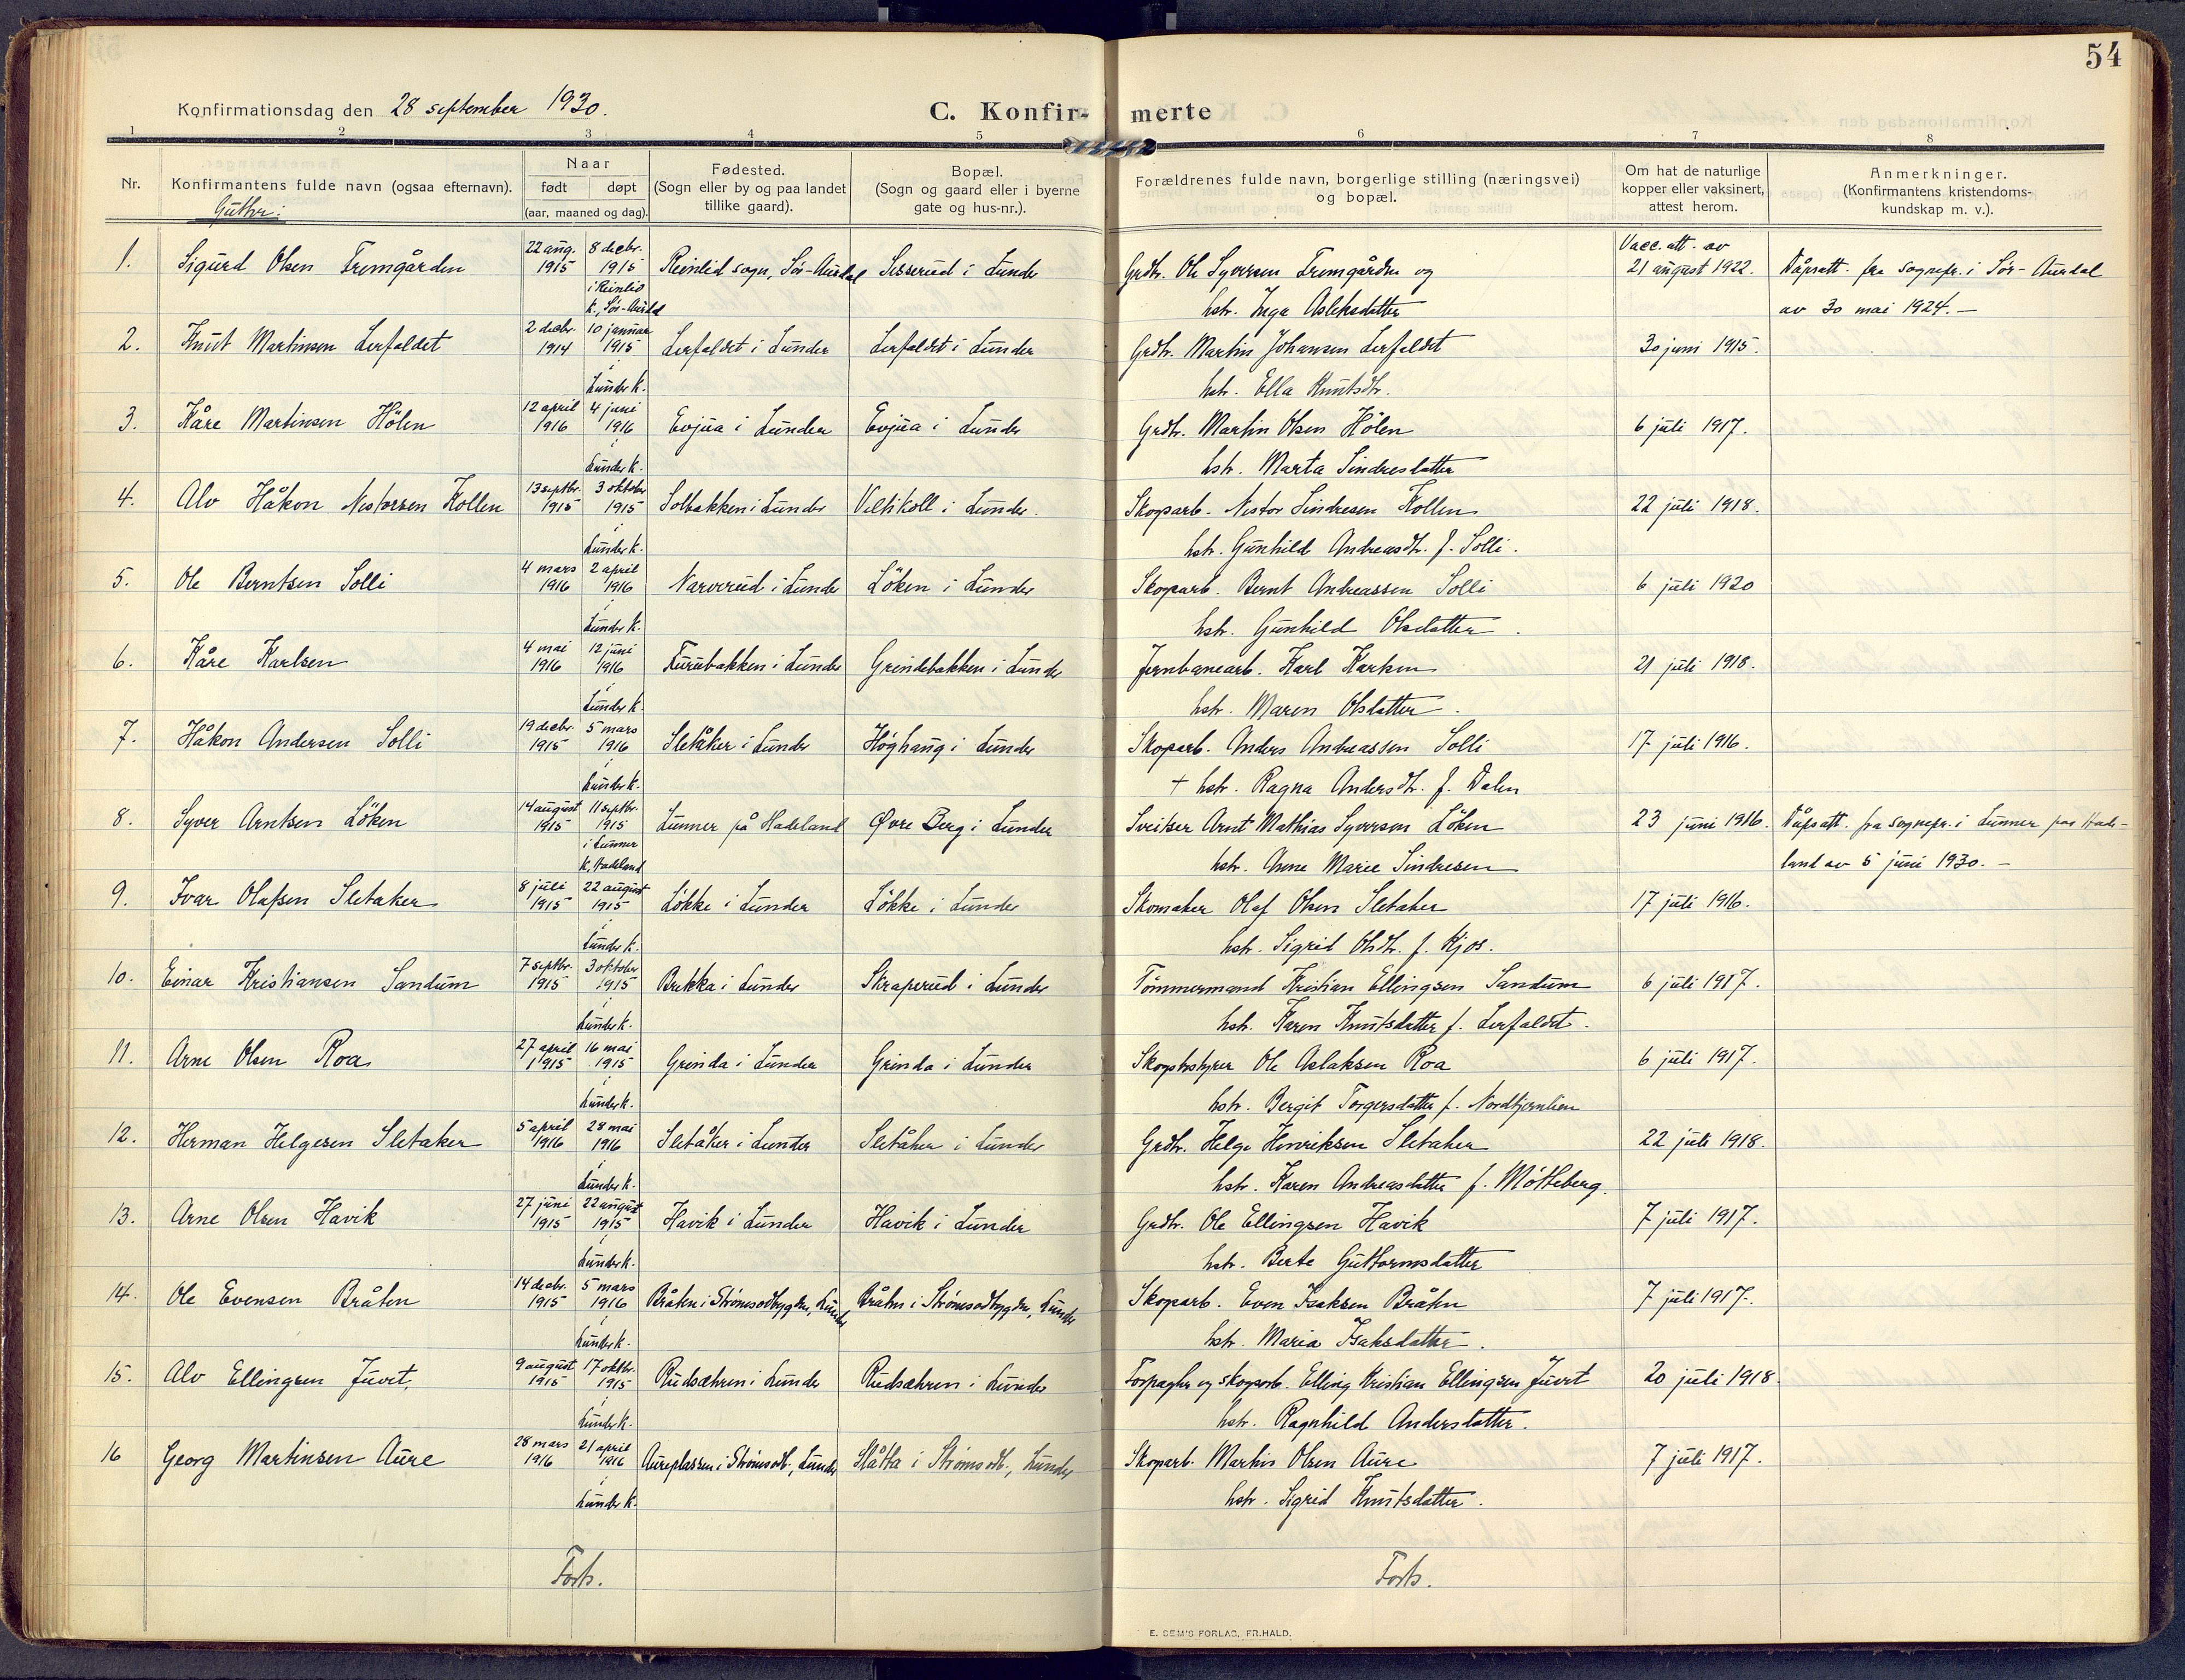 54
Konfirmationsdag den 28 september 1930.
C. Konfir- merte
1 2 3 4 5 6 7 8
Nr.
Konfirmantens fulde navn (ogsaa efternavn).
Gutter:
Naar
født døpt
(aar, maaned og dag).
Fødested.
(Sogn eller by og paa landet
tillike gaard).
Bopæl.
(Sogn og gaard eller i byerne
gate og hus-nr.).
Forældrenes fulde navn, borgerlige stilling (næringsvei)
og bopæl.
Om hat de naturlige
kopper eller vaksinert,
attest herom.
Anmerkninger.
(Konfirmantens kristendoms-
kundskap m. v.).
1. Sigurd Olsen Fremgården 22 aug. 1915 8 decbr. 1915 i Reinlid k., Sør-Aurdal Reinlid sogn, Sør-Aurdal Sisserud i Lunder Grdbr. Ole Syversen Fremgården og Vacc. att. av 21 august 1922. Dåpsatt. fra sognepr. i Sør-Aurdal
hstr. Inga Aslaksdatter av 30 mai 1924. —
2. Knut Martinsen Lerfaldet 2 decbr. 1914 10 januar 1915 i Lunder k. Lerfaldet i Lunder Lerfaldet i Lunder Grdbr. Martin Johansen Lerfaldet 30 juni 1915.
hstr. Ella Knutsdtr.
3. Kåre Martinsen Hölen 12 april 1916 4 juni 1916 i Lunder k. Evjua i Lunder Evjua i Lunder Grdbr. Martin Olsen Hölen 6 juli 1917.
hstr. Marta Sindresdatter
4. Alv Håkon Nestorsen Kollen 13 septbr. 1915 3 oktober 1915 i Lunder k. Solbakken i Lunder Veltikoll i Lunder. Skogarb. Nestor Sindresen Kollen 22 juli 1918.
hstr. Gunhild Andreasdtr. f. Solli.
5. Ole Berntsen Solli 4 mars 1916 2 april 1916 i Lunder k. Narverud i Lunder Löken i Lunder Skogarb. Bernt Andreassen Solli 6 juli 1920
hstr. Gunhild Olsdatter.
6. Kåre Karlsen 4 mai 1916 12 juni 1916 i Lunder k. Furubakken i Lunder Grindebakken i Lunder Jernbanearb. Karl Karlsen 21 juli 1918.
hstr. Maren Olsdatter.
7. Håkon Andersen Solli 19 decbr. 1915 5 mars 1916 i Lunder k. Sletåker i Lunder Höghaug i Lunder Skogarb. Anders Andreassen Solli 17 juli 1916.
+ hstr. Ragna Andersdtr. f. Dalen
8. Syver Arntsen Löken 14 august 1915 11 septbr. 1915 i Lunner k., Hadeland Lunner på Hadeland Øvre Berg i Lunder Sveitser Arnt Mathias Syversen Löken 23 juni 1916. Dåpsatt. fra sognepr. i Lunner paa Hade-
hstr. Anne Marie Sindresen land av 5 juni 1930. —
9. Ivar Olafsen Sletaker 8 juli 1915 22 august 1915 i Lunder k. Lökke i Lunder Lökke i Lunder Skomaker Olaf Olsen Sletaker 17 juli 1916.
hstr. Sigrid Olsdtr. f. Kjos.
10. Einar Kristiansen Sandum 7 septbr. 1915 3 oktober 1915 i Lunder k. Brekka i Lunder Skraperud i Lunder Tömmermand Kristian Ellingsen Sandum 6 juli 1917.
hstr. Karen Knutsdatter f. Lerfaldet.
11. Arne Olsen Roa 27 april 1915 16 mai 1915 i Lunder k. Grinda i Lunder Grinda i Lunder Skogbestyrer Ole Aslaksen Roa 6 juli 1917.
hstr. Bergit Torgersdatter f. Nordtjernlien
12. Herman Helgesen Sletaker 5 april 1916 28 mai 1916 i Lunder k. Sletåker i Lunder Sletåker i Lunder Grdbr. Helge Henriksen Sletaker 22 juli 1918.
hstr. Karen Andreasdatter f. Mötteberg.
13. Arne Olsen Havik 27 juni 1915 22 august 1915 i Lunder k. Havik i Lunder Havik i Lunder Grdbr. Ole Ellingsen Havik 7 juli 1917.
hstr. Berte Guttormsdatter
14. Ole Evensen Bråten 14 decbr. 1915 5 mars 1916 i Lunder k. Bråten i Strömsodbygden, Lunder Bråten i Strömsodbygden, Lunder Skogarb. Even Isaksen Bråten 7 juli 1917.
hstr. Maria Isaksdatter.
15. Alv Ellingsen Juvet, 9 august 1915 17 oktbr. 1915 i Lunder k. Rudsætren i Lunder Rudsætren i Lunder Forpagter og skogarb. Elling Kristian Ellingsen Juvet 20 juli 1918.
hstr. Ragnhild Andersdatter.
16 Georg Martinsen Aure 28 mars 1916 21 april 1916 i Lunder k. Aureplassen i Strömsodb., Lunder Slåtta i Strömsodb., Lunder Skogarb. Martin Olsen Aure 7 juli 1917.
hstr. Sigrid Knutsdatter.
Forts. Forts.
E. SEM'S FORLAG, FR.HALD.